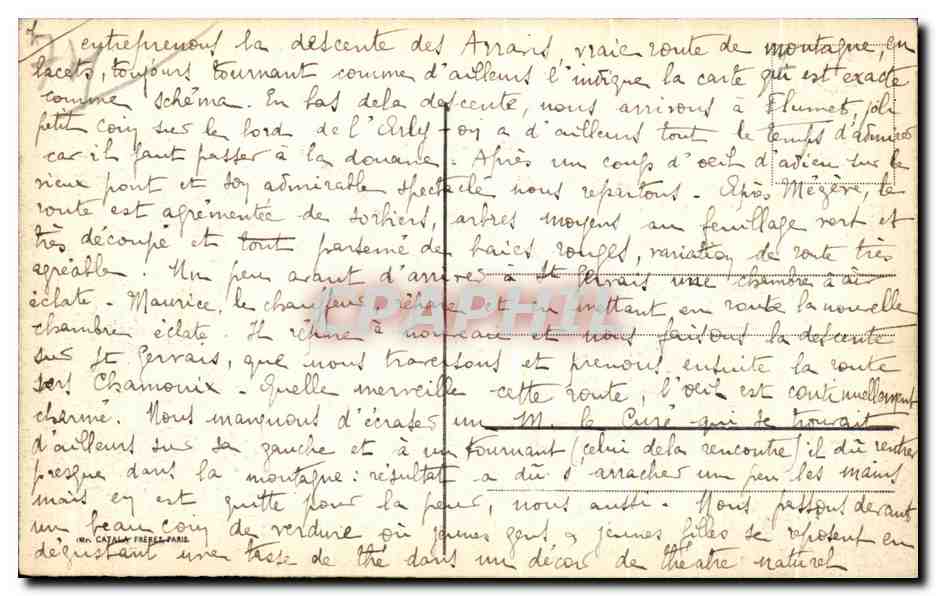 7
entreprenons la descente des Arravis, vraie route de montagne, en
lacets, toujours tournant comme d'ailleurs l'indique la carte qui est exacte
comme schéma. En bas de la descente, nous arrivons à Flumet, joli
petit coin sur le bord de l'Arly - on a d'ailleurs tout le temps d'admirer
car il faut passer à la douane. Après un coup d'oeil d'adieu sur le
vieux pont et son admirable spectacle nous repartons. Après Mégève, la
route est agrémentée de sorbiers, arbres moyens au feuillage vert et
très découpé et tout parsemé de baies rouges, variation de route très
agréable. Un peu avant d'arriver à St Gervais une chambre à air
éclate. Maurice, le chauffeur répare et en mettant, en route la nouvelle
chambre éclate. Il répare à nouveau et nous faisons la descente
sur St Gervais, que nous traversons et prenons ensuite la route
vers Chamonix. Quelle merveille cette route, l'oeil est continuellement
charmé. Nous manquons d'écraser un M. le Curé qui se trouvait
d'ailleurs sur sa gauche et à un tournant (celui de la rencontre) il dû rentrer
presque dans la montagne: résultat a dû s'arracher un peu les mains
mais en est quitte pour la peur, nous aussi. Nous passons devant
un beau coin de verdure où jeunes gens & jeunes filles se reposent en
IMP. CATALA FRÈRES, PARIS
dégustant une tasse de thé dans un décor de théâtre naturel
CPAPHIL